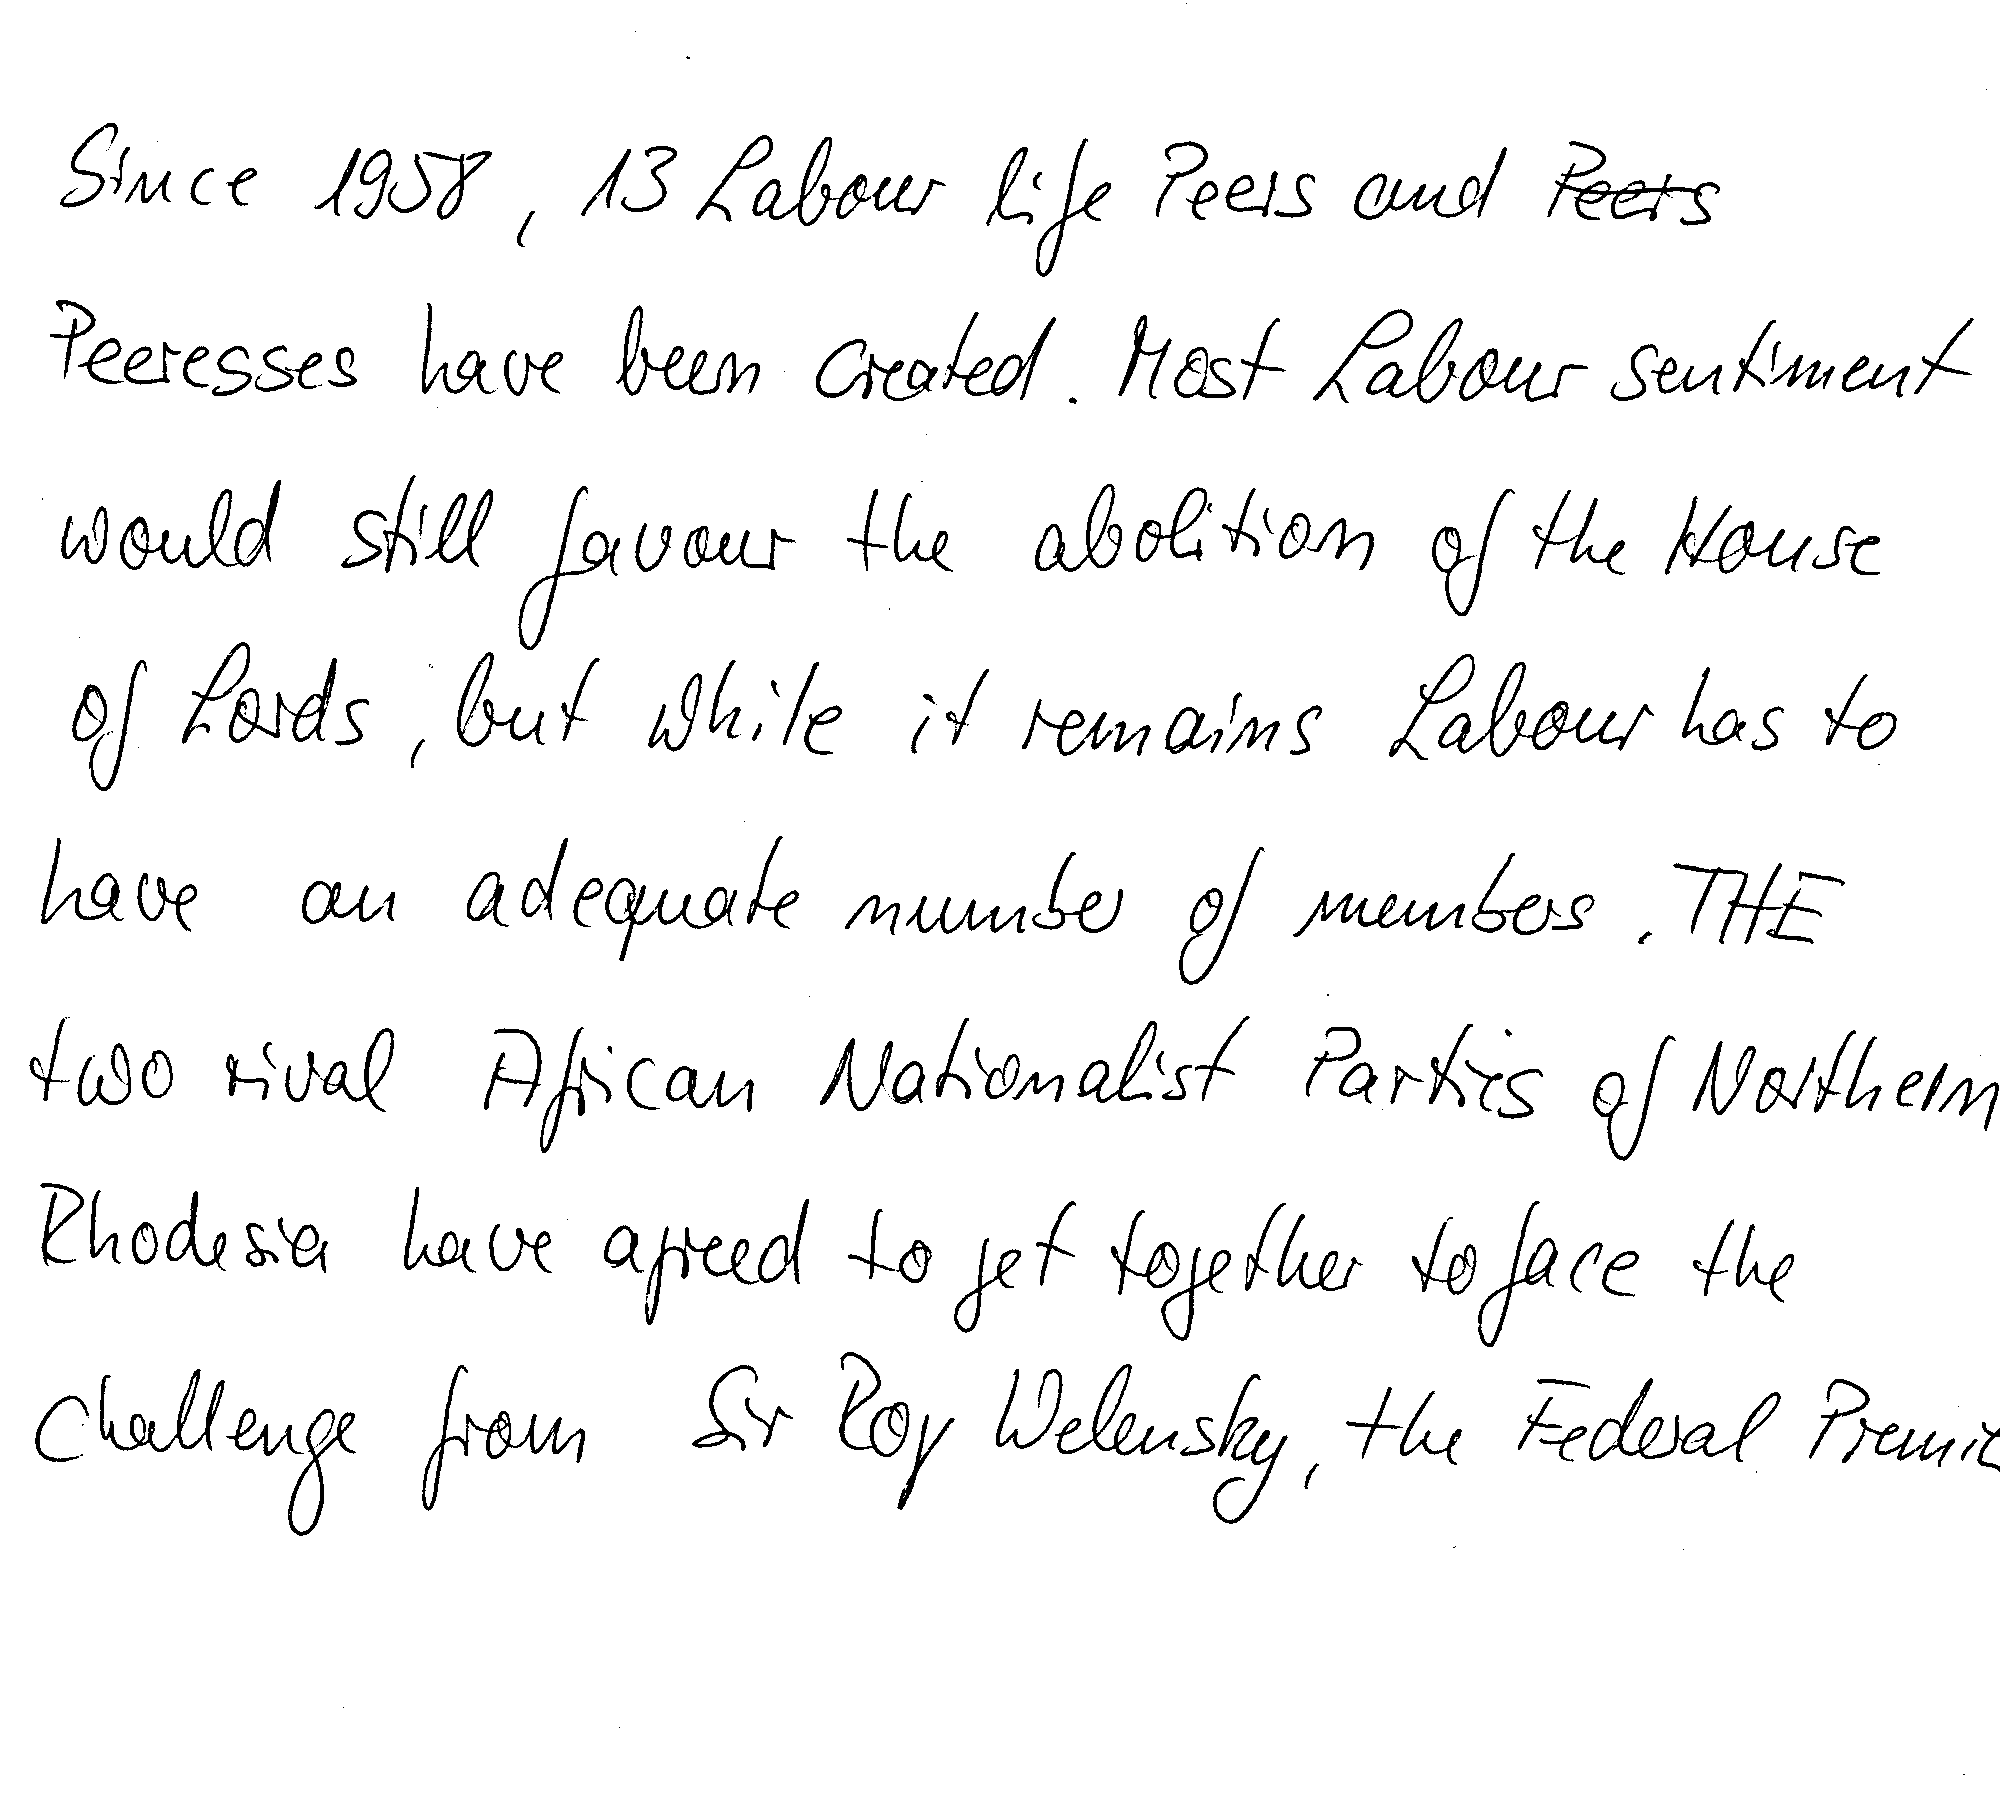 Since 1958, 13 Labour life Peers and Peers
Peeresses have been created. Most Labour sentiment
would still favour the abolition of the House
of Lords, but while it remains Labour has to
have an adequate number of members. THE
two rival African Nationalist Parties of Northern
Rhodesia have agreed to get together to face the
challenge from Sir Roy Welensky, the Federal Premie